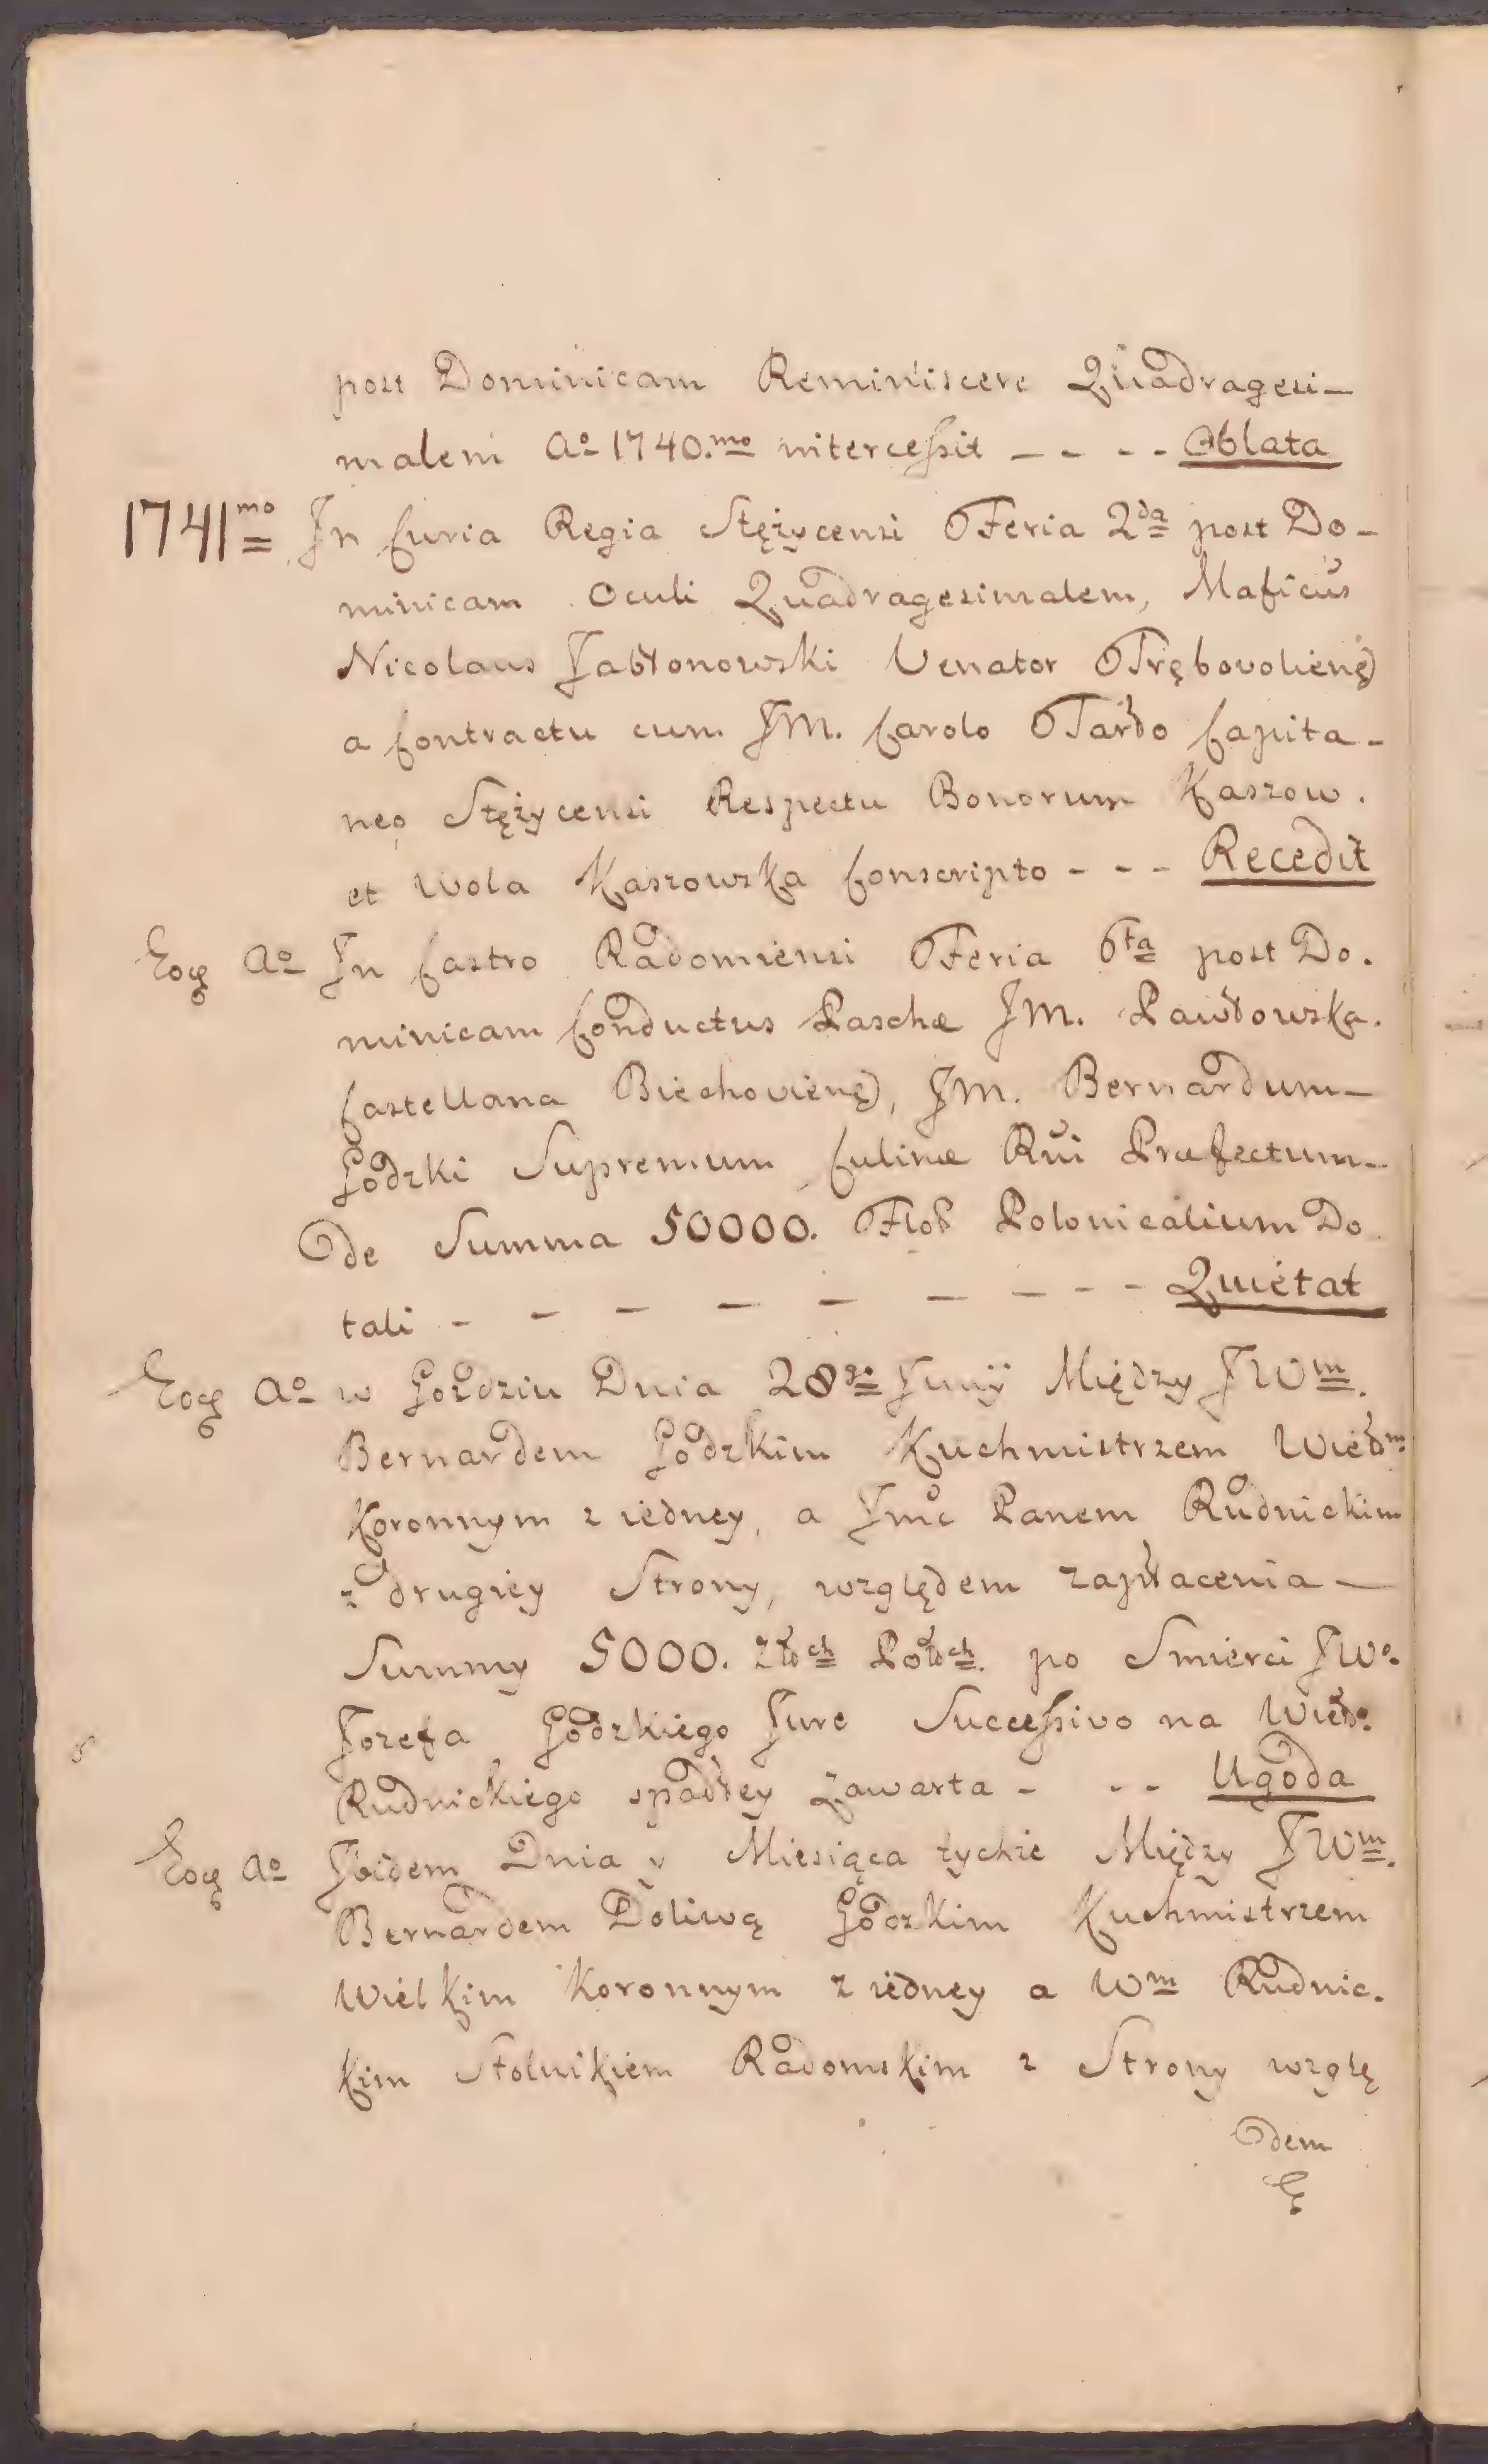 post Dominicam Reminiscere Quadragesi-
malem Ao 1740.mo intercessit - - - - Oblata
1741mo In Curia Regia Stężycensi Feria 2da post Do-
minicam Oculi Quadragesimalem, Mаficus
Nicolaus Jabłonowski Venator Trębovolien
a Contractu cum JM. Carolo Tarło Capita-
neo Stężycensi Respectu Bonorum Kaszow.
et Wola Kaszowska Conscripto - - - Recedit
Eoq Ao In Castro Radomiensi Feria 6ta post Do.
minicam Conductus Paschæ JM. Pawłowska.
Castellana Biechovien, JM. Bernardum-
Godzki Supremum Culinæ Rni Præfectum-
de Summa 50000. Flor Polonicalium Do
tali - - - - - - - - - Quietat
Eoq Ao w Gozdziu Dnia 28go Junÿ Między JWm.
Bernardem Godzkim Kuchmistrzem Wielm
Koronnym z iedney, a Jmc Panem Rudnickim
z drugiey Strony, względem zapłacenia -
Summy 5000. Złch Polch. po Smierci JWo.
Jozefa Godzkiego Jure Successivo na Wielo.
Rudnickiego spadłey zawarta - - - Ugoda
Eoq Ao Ibidem Dnia y Miesiąca tychże Między JWm.
Bernardem Doliwą Godzkim Kuchmistrzem
Wielkim Koronnym z iedney a Wm Rudnic.
kim Stolnikiem Radomskim z Strony wzglę
dem